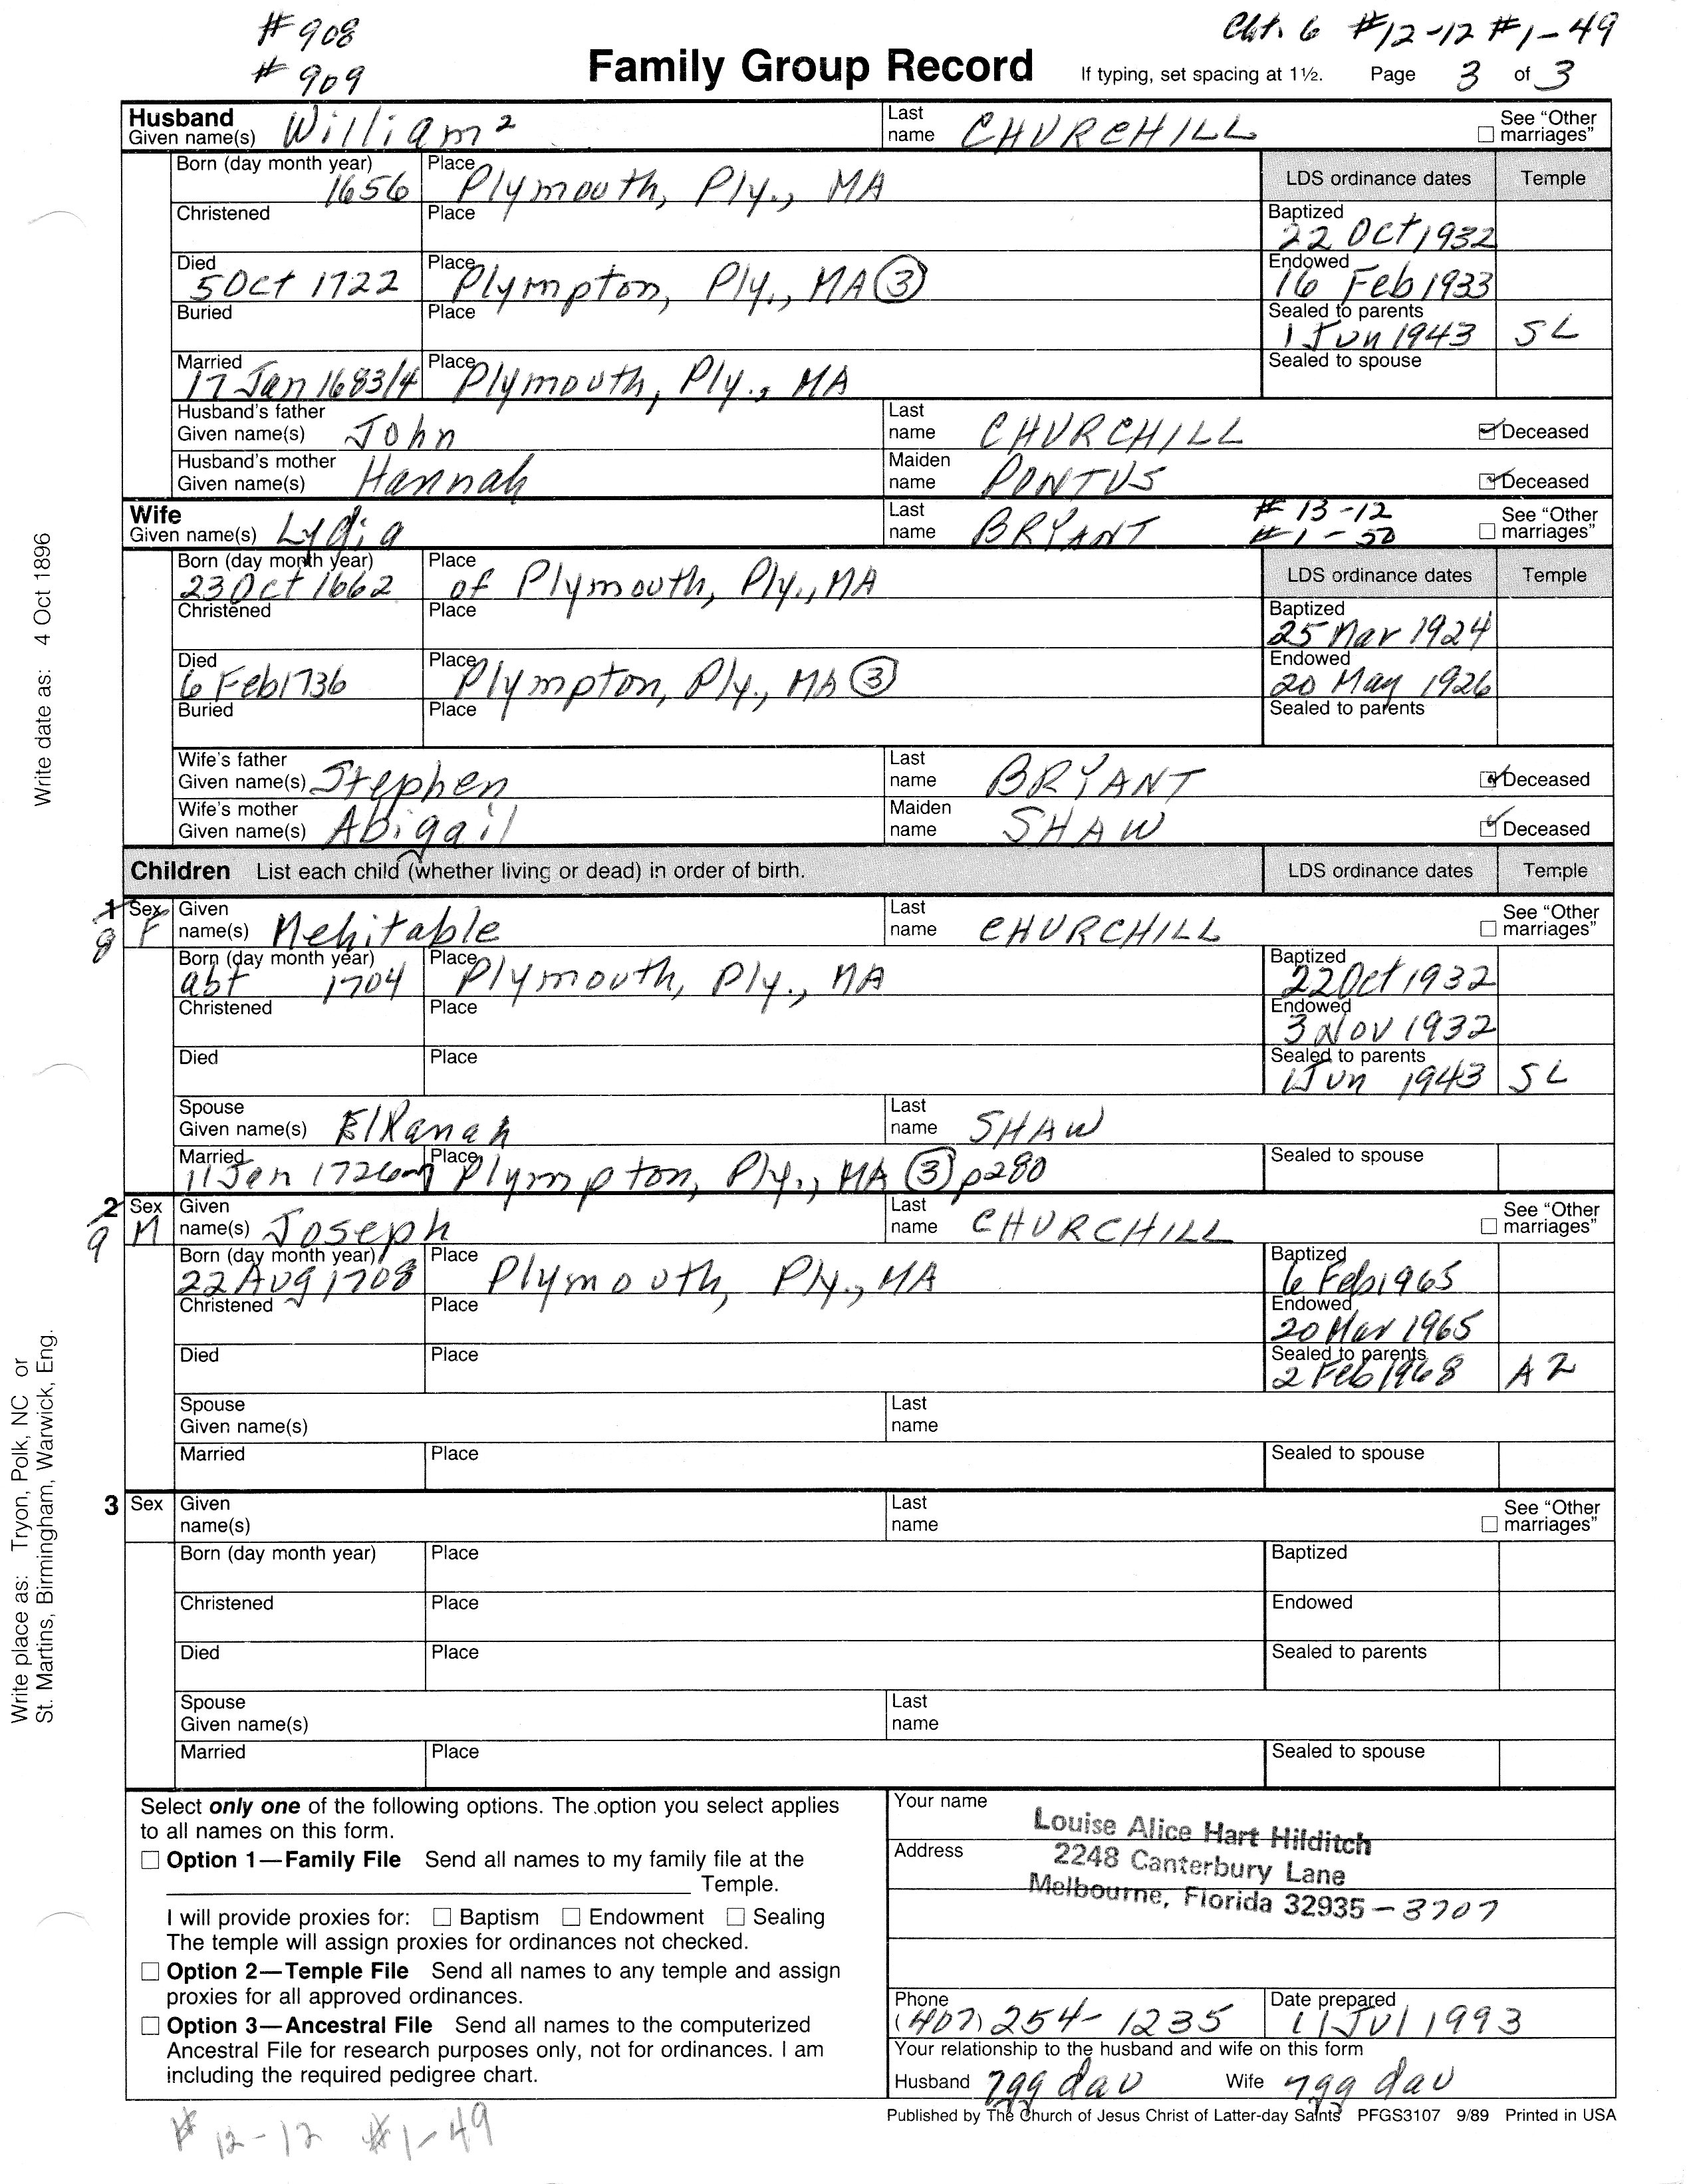 #908
#909
Cht. 6 #12-12 #1-49
Family Group Record
If typing, set spacing at 1½. Page 3 of 3
Husband
Given name(s) William²
Last name CHURCHILL
See "Other marriages"
Born (day month year) 1656
Place Plymouth, Ply., MA
LDS ordinance dates Temple
Christened
Place
Baptized 22 Oct 1932
Died 5 Oct 1722
Place Plympton, Ply., MA ③
Endowed 16 Feb 1933
Buried
Place
Sealed to parents 1 Jun 1943 SL
Married 17 Jan 1683/4
Place Plymouth, Ply., MA
Sealed to spouse
Husband's father
Given name(s) John
Last name CHURCHILL
Deceased
Husband's mother
Given name(s) Hannah
Maiden name PONTUS
Deceased
Wife
Given name(s) Lydia
Last name BRYANT
#13-12
#1-50
See "Other marriages"
Born (day month year) 23 Oct 1662
Place of Plymouth, Ply., MA
LDS ordinance dates Temple
Christened
Place
Baptized 25 Mar 1924
Died 6 Feb 1736
Place Plympton, Ply., MA ③
Endowed 20 May 1926
Buried
Place
Sealed to parents
Wife's father
Given name(s) Stephen
Last name BRYANT
Deceased
Wife's mother
Given name(s) Abigail
Maiden name SHAW
Deceased
Children List each child (whether living or dead) in order of birth.
LDS ordinance dates Temple
1
8
Sex F
Given name(s) Mehitable
Last name CHURCHILL
See "Other marriages"
Born (day month year) abt 1704
Place Plymouth, Ply., MA
Baptized 22 Oct 1932
Christened
Place
Endowed 3 Nov 1932
Died
Place
Sealed to parents 1 Jun 1943 SL
Spouse
Given name(s) Elkanah
Last name SHAW
Married 11 Jan 1726
Place Plympton, Ply., MA ③ p280
Sealed to spouse
2
9
Sex M
Given name(s) Joseph
Last name CHURCHILL
See "Other marriages"
Born (day month year) 22 Aug 1708
Place Plymouth, Ply., MA
Baptized 6 Feb 1965
Christened
Place
Endowed 20 Mar 1965
Died
Place
Sealed to parents 2 Feb 1968 AZ
Spouse
Given name(s)
Last name
Married
Place
Sealed to spouse
3
Sex
Given name(s)
Last name
See "Other marriages"
Born (day month year)
Place
Baptized
Christened
Place
Endowed
Died
Place
Sealed to parents
Spouse
Given name(s)
Last name
Married
Place
Sealed to spouse
Write date as: 4 Oct 1896
Write place as: Tryon, Polk, NC or
St. Martins, Birmingham, Warwick, Eng.
Select only one of the following options. The option you select applies
to all names on this form.
Option 1—Family File Send all names to my family file at the
Temple.
I will provide proxies for: Baptism Endowment Sealing
The temple will assign proxies for ordinances not checked.
Option 2—Temple File Send all names to any temple and assign
proxies for all approved ordinances.
Option 3—Ancestral File Send all names to the computerized
Ancestral File for research purposes only, not for ordinances. I am
including the required pedigree chart.
Your name Louise Alice Hart Hilditch
Address 2248 Canterbury Lane
Melbourne, Florida 32935-3707
Phone (407) 254-1235
Date prepared 11 Jul 1993
Your relationship to the husband and wife on this form
Husband 7gg dau Wife 7gg dau
Published by The Church of Jesus Christ of Latter-day Saints PFGS3107 9/89 Printed in USA
#12-12 #1-49